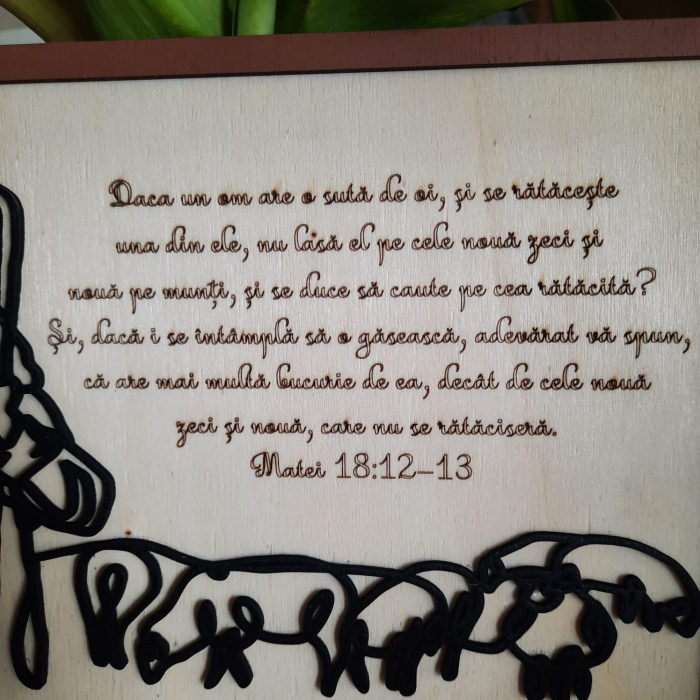 Daca un om are o sută de oi, și se rătăcește
una din ele, nu lasă el pe cele nouă zeci și
nouă pe munți, și se duce să caute pe cea rătăcită?
Și, dacă i se întâmplă să o găsească, adevărat vă spun,
că are mai multă bucurie de ea, decât de cele nouă
zeci și nouă, care nu se rătăciseră.
Matei 18:12–13